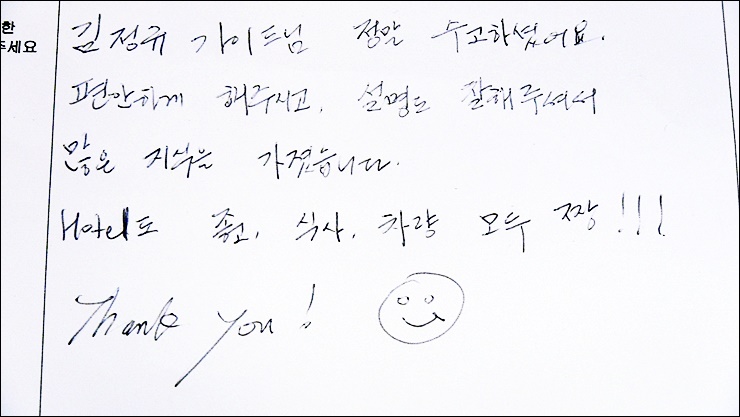 한
주세요
김정규 가이드님 정말 수고하셨어요.
편안하게 해주시고, 설명도 잘해주셔서
많은 지식을 가졌습니다.
Hotel도 좋고, 식사, 차량 모두 짱!!!
Thank you!